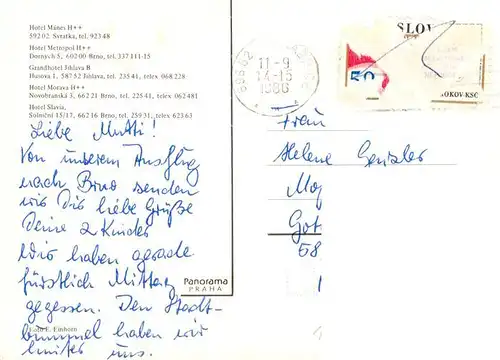 Hotel Mánes H++
592 02 Svratka, tel. 923 48
Hotel Metropol H++
Dornych 5, 660 00 Brno, tel. 337 111-15
Grandhotel Jihlava B
Husova 1, 587 52 Jihlava, tel. 235 41, telex 068 228
Hotel Morava H++
Novobranská 3, 662 21 Brno, tel. 275 26, telex 062 481
Hotel Slavia,
Solniční 15/17, 662 16 Brno, tel. 259 31, telex 623 63
Liebe Mutti!
Von unserem Ausflug
nach Brno senden
wir Dir liebe Grüße
Deine 2 Kinder
Wir haben gerade
fürstlich Mittag
gegessen. Den Stadt-
bummel haben wir
hinter uns.
E. Einhorn
Panorama
PRAHA
11-9
14-15
1986
SLOV
OKOV-KSČ
Frau
Helene
Got
58